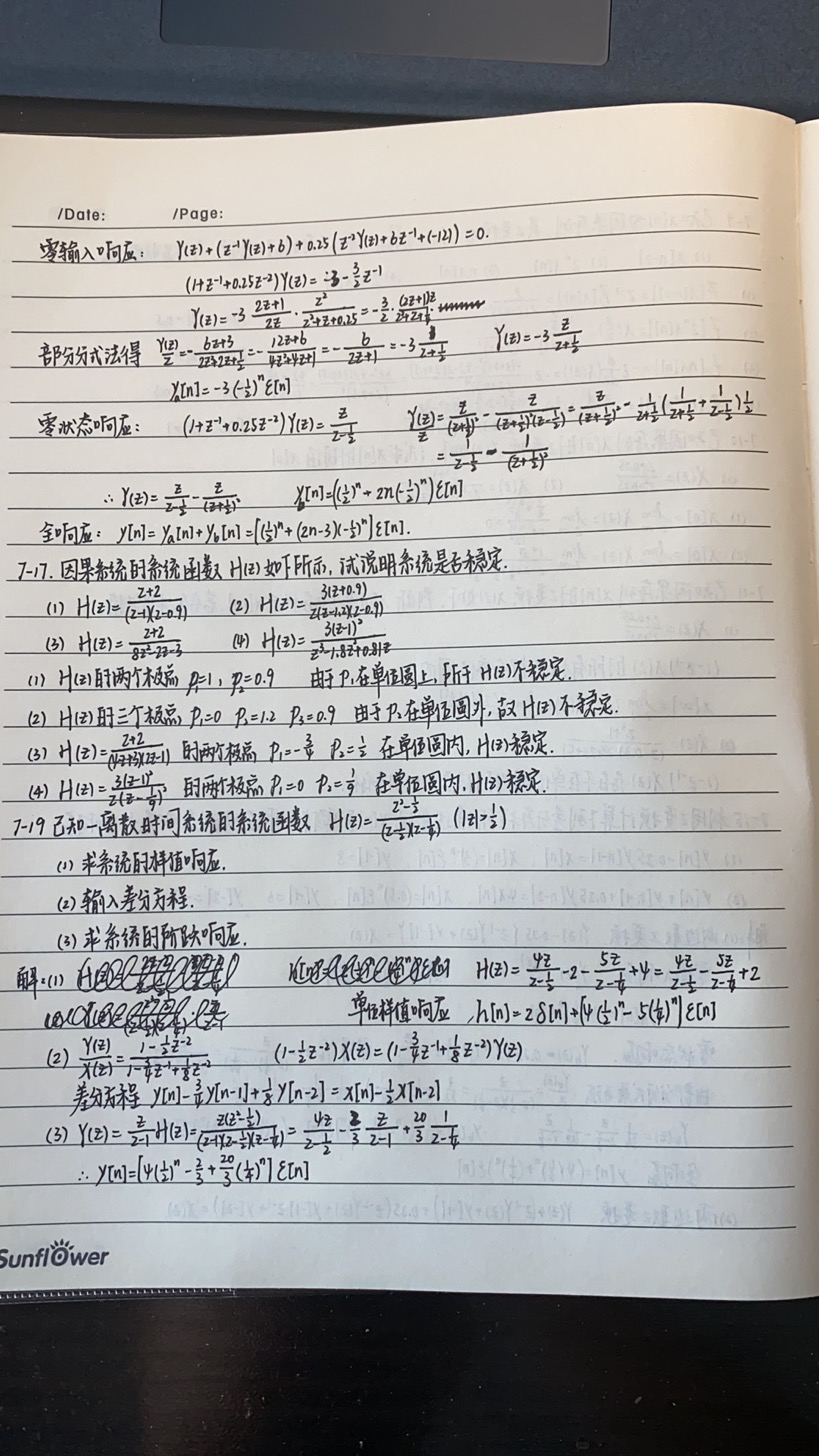 /Date: /Page:
零输入响应: Y(z)+(z⁻¹Y(z)+6)+0.25(z⁻²Y(z)+6z⁻¹+(-12))=0.
(1+z⁻¹+0.25z⁻²)Y(z)=-3-3/2z⁻¹
Y(z)=-3 (2z+1)/(2z)·z²/(z²+z+0.25)=-3/2·(2z+1)z/(z²+z+1/4)
部分分式法得 Y(z)/z=-(6z+3)/(2z²+2z+1/2)=-(12z+6)/(4z²+4z+1)=-6/(2z+1)=-3 1/(z+1/2) Y(z)=-3 z/(z+1/2)
yₐ[n]=-3(-1/2)ⁿε[n]
零状态响应: (1+z⁻¹+0.25z⁻²)Y(z)=z/(z-1/2) Y(z)/z=z/(z+1/2)²-z/((z+1/2)²(z-1/2))=z/(z+1/2)²-1/(z+1/2)(1/(z+1/2)+1/(z-1/2))1/2
=1/(z-1/2)-1/(z+1/2)²
∴Y(z)=z/(z-1/2)-z/(z+1/2)² y_b[n]=((1/2)ⁿ+2n(-1/2)ⁿ)ε[n]
全响应: y[n]=yₐ[n]+y_b[n]=[(1/2)ⁿ+(2n-3)(-1/2)ⁿ]ε[n].
7-17. 因果系统的系统函数H(z)如下所示,试说明系统是否稳定.
(1) H(z)=(z+2)/((z-1)(z-0.9)) (2) H(z)=3(z+0.9)/(z(z-1.2)(z-0.9))
(3) H(z)=(z+2)/(8z²-2z-3) (4) H(z)=3(z-1)²/(z³-1.8z²+0.81z)
(1) H(z)的两个极点 p₁=1, p₂=0.9 由于p₁在单位圆上,所于H(z)不稳定.
(2) H(z)的三个极点p₁=0 p₂=1.2 p₃=0.9 由于p₂在单位圆外,故H(z)不稳定.
(3) H(z)=(z+2)/((4z+3)(2z-1)) 的两个极点 p₁=-3/4 p₂=1/2 在单位圆内,H(z)稳定.
(4) H(z)=3(z-1)²/(z(z-1/9)²) 的两个极点p₁=0 p₂=1/9 在单位圆内,H(z)稳定.
7-19 已知一离散时间系统的系统函数 H(z)=(z²-1/2)/((z-1/2)(z-1/4)) (|z|>1/2)
(1) 求系统的样值响应.
(2) 输入差分方程.
(3) 求系统的阶跃响应.
解:(1) H(z)=4z/(z-1/2)-2-5z/(z-1/4)+4=4z/(z-1/2)-5z/(z-1/4)+2
单位样值响应 h[n]=2δ[n]+[4(1/2)ⁿ-5(1/4)ⁿ]ε[n]
(2) Y(z)/X(z)=(1-1/2z⁻²)/(1-3/4z⁻¹+1/8z⁻²) (1-1/2z⁻²)X(z)=(1-3/4z⁻¹+1/8z⁻²)Y(z)
差分方程 y[n]-3/4y[n-1]+1/8y[n-2]=x[n]-1/2x[n-2]
(3) Y(z)=z/(z-1)H(z)=z(z²-1/2)/((z-1)(z-1/2)(z-1/4))=4z/(z-1/2)-2/3 z/(z-1)+20/3 1/(z-1/4)
∴y[n]=[4(1/2)ⁿ-2/3+20/3(1/4)ⁿ]ε[n]
Sunflower